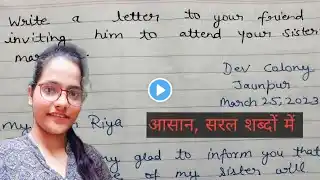 Write a letter to your friend
inviting him to attend your sister
Dev Colony
Jaunpur
March 25, 2023
my Riya
आसान, सरल शब्दों में
my glad to inform you that
of my sister will